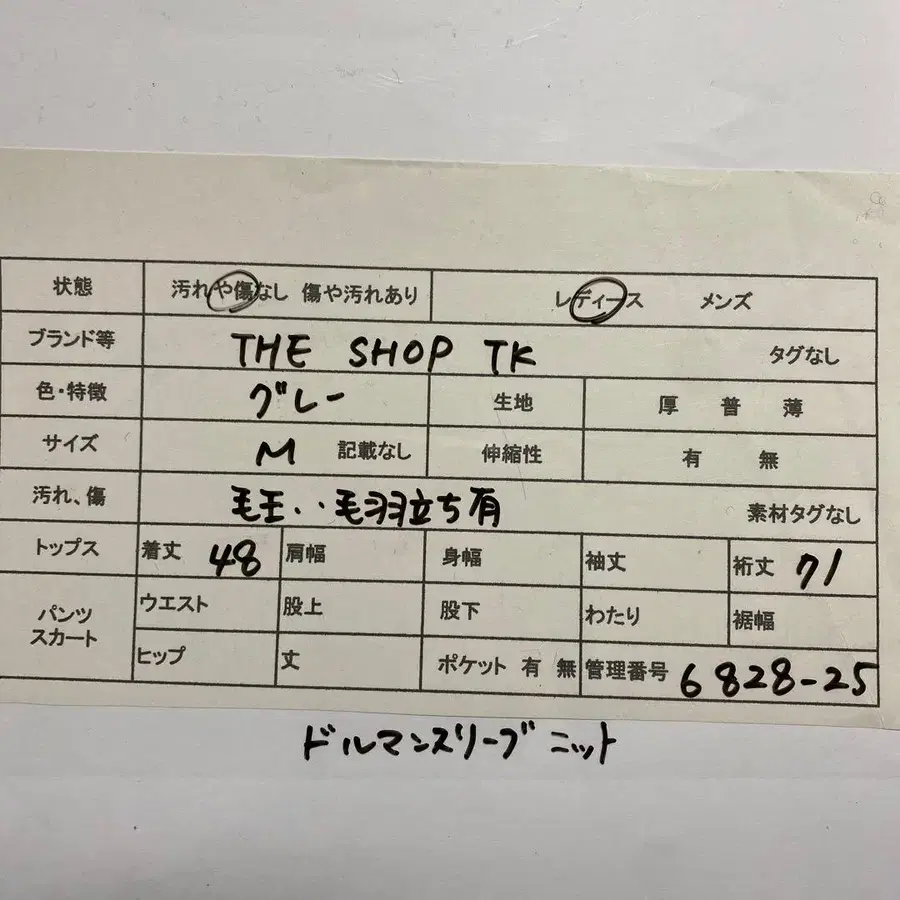 状態 汚れや傷なし 傷や汚れあり レディース メンズ
ブランド等 THE SHOP TK タグなし
色・特徴 グレー 生地 厚 普 薄
サイズ M 記載なし 伸縮性 有 無
汚れ、傷 毛玉・・毛羽立ち有 素材タグなし
トップス 着丈 48 肩幅 身幅 袖丈 裄丈 71
パンツ スカート ウエスト 股上 股下 わたり 裾幅
ヒップ 丈 ポケット 有 無 管理番号 6828-25
ドルマンスリーブ ニット